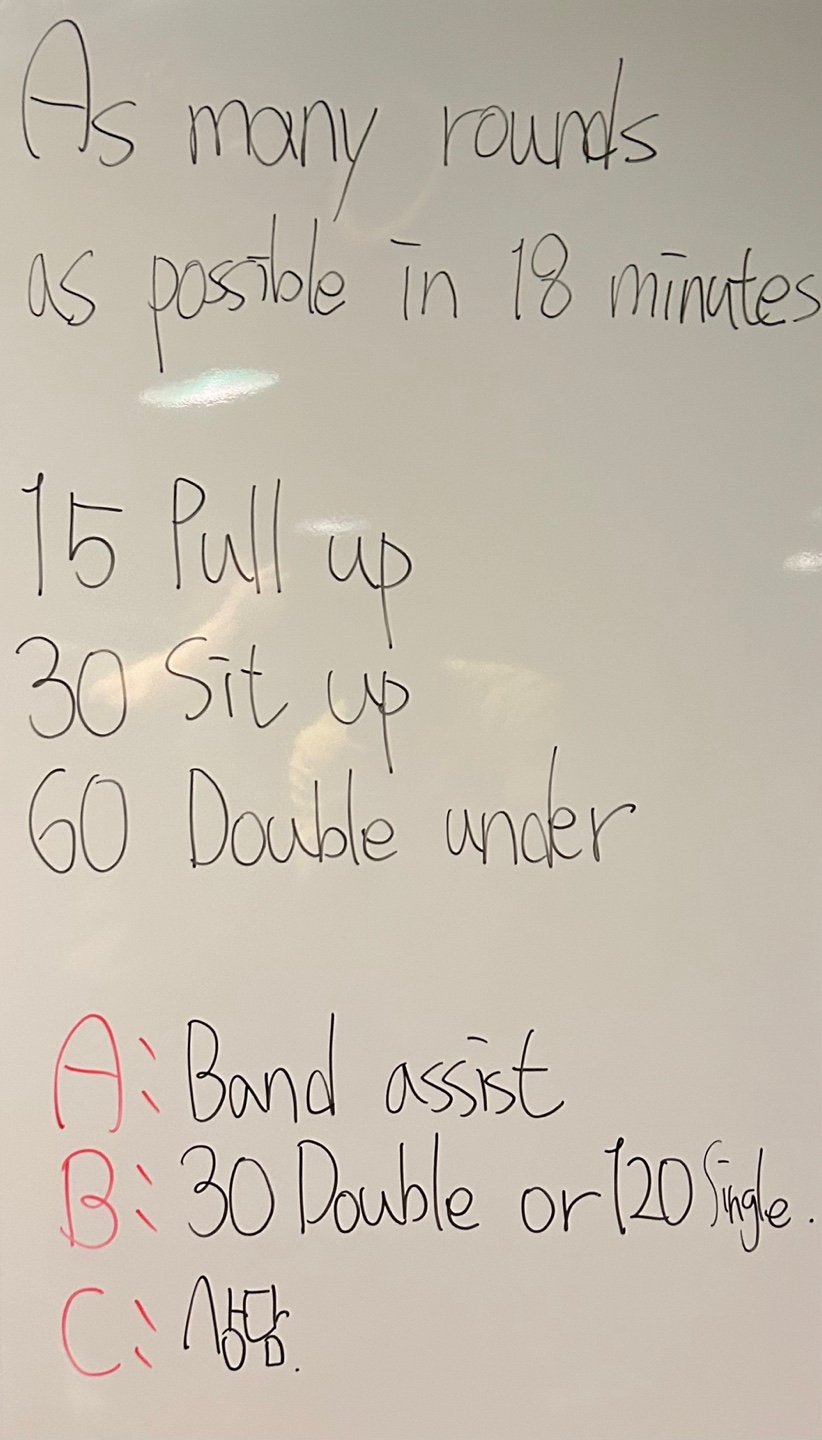 As many rounds
as possible in 18 minutes
15 Pull up
30 Sit up
60 Double under
A: Band assist
B: 30 Double or 120 Single.
C: 상담.